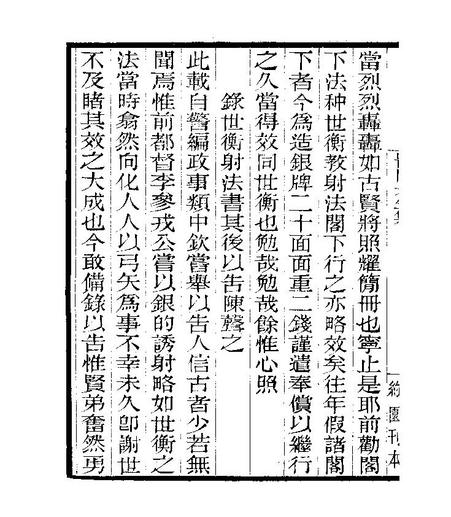 當烈烈轟轟如古賢將照耀簡冊也寧止是耶前勸閣
下法种世衡教射法閣下行之亦略效矣往年假諸閣
下者今為造銀牌二十面面重二錢謹遣奉償以繼行
之久當得效同世衡也勉哉勉哉餘惟心照
錄世衡射法書其後以告陳聲之
此載自警編政事類中欽嘗舉以告人信古者少若無
聞焉惟前都督李參戎公嘗以銀的誘射略如世衡之
法當時翕然向化人人以弓矢為事不幸未久卽謝世
不及睹其效之大成也今敢備錄以告惟賢弟奮然勇
約園刊本